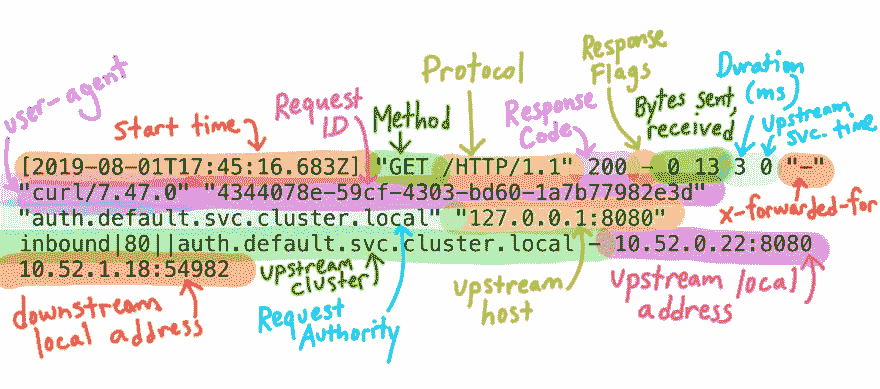 user-agent
start time
Request
ID
Method
Protocol
Response
Code
Response
Flags
Bytes sent,
received
Duration
(ms)
upstream
svc. time
[2019-08-01T17:45:16.683Z] "GET /HTTP/1.1" 200 - 0 13 3 0 "-"
"curl/7.47.0" "4344078e-59cf-4303-bd60-1a7b77982e3d"
x-forwarded-for
"auth.default.svc.cluster.local" "127.0.0.1:8080"
inbound|80||auth.default.svc.cluster.local - 10.52.0.22:8080
10.52.1.18:54982
downstream
local address
upstream
cluster
Request
Authority
upstream
host
upstream local
address